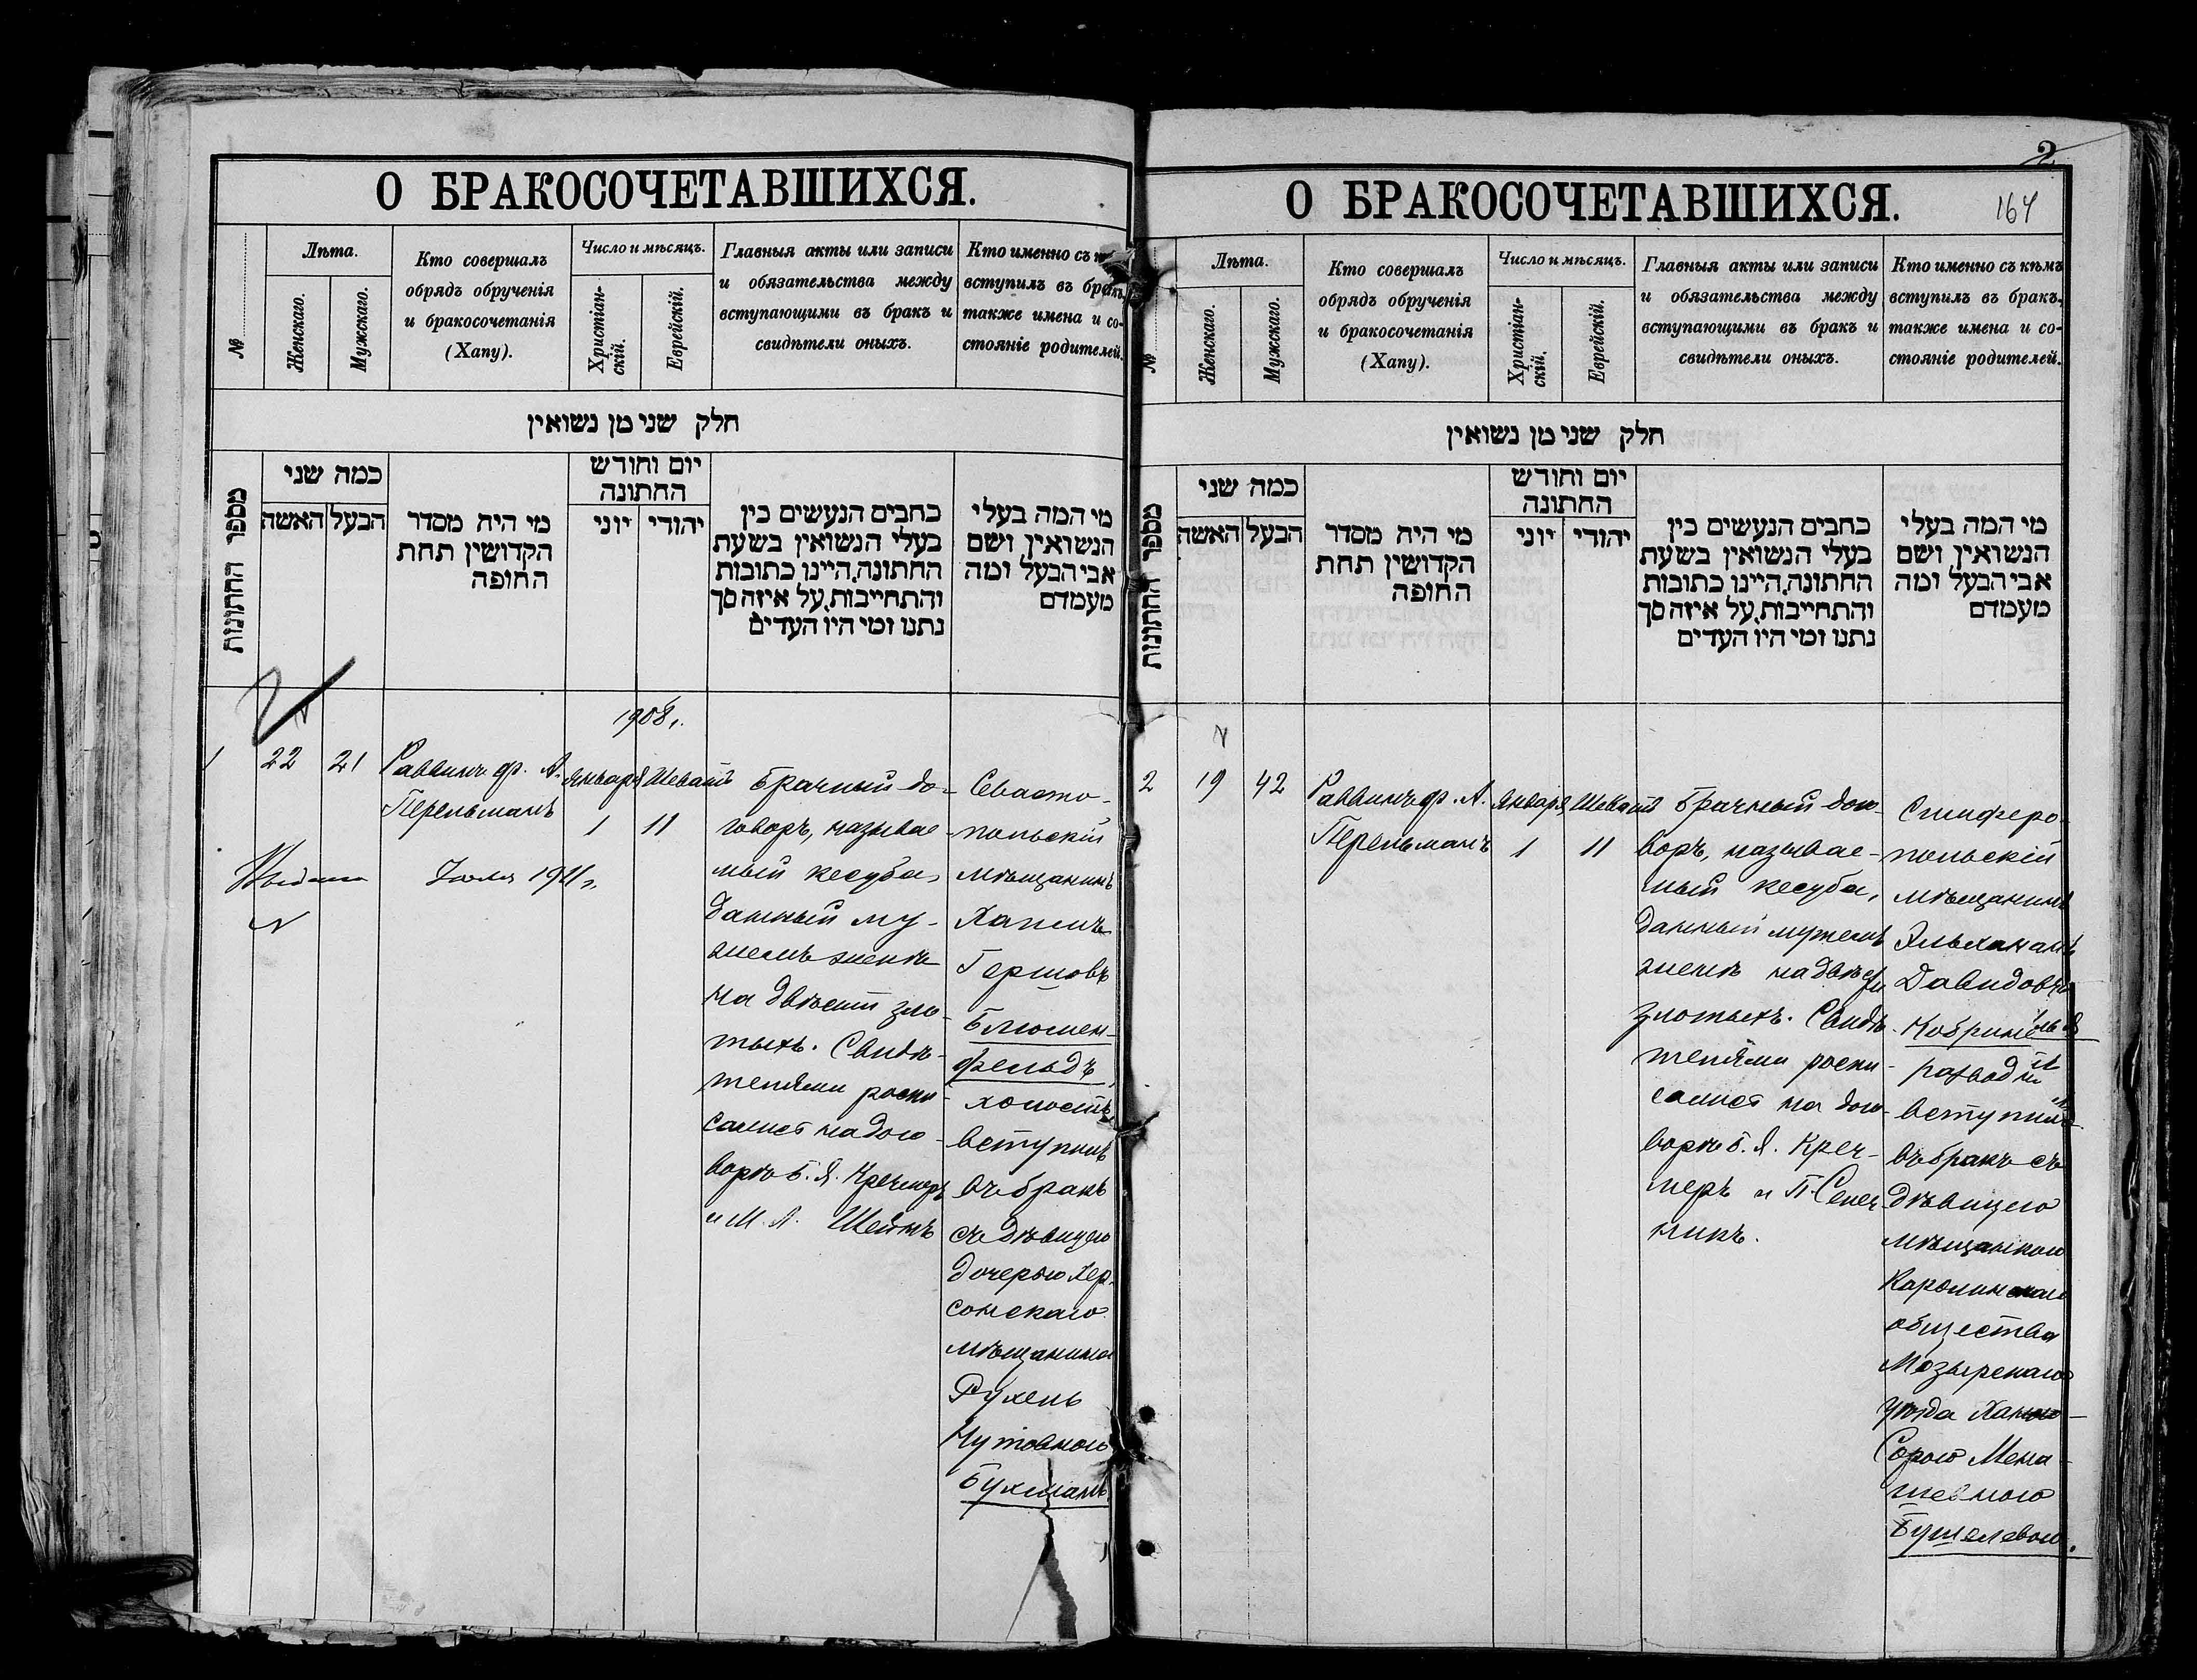 О БРАКОСОЧЕТАВШИХСЯ.
№
Лѣта.
Женскаго.
Мужскаго.
Кто совершалъ
обрядъ обрученія
и бракосочетанія
(Хапу).
Число и мѣсяцъ.
Христіан-
скій.
Еврейскій.
Главныя акты или записи
и обязательства между
вступающими въ бракъ и
свидѣтели оныхъ.
Кто именно съ
вступилъ въ бракъ,
также имена и со-
стояніе родителей.
חלק שני מן נשואין
מספר החתונות
כמה שני
הבעל
האשה
מי היה מסדר
הקדושין תחת
החופה
יום וחודש
החתונה
יהודי
יוני
כתבים הנעשים בין
בעלי הנשואין בשעת
החתונה, היינו כתובות
והתחייבות, על איזה סך
נתנו ומי היו העדים
מי המה בעלי
הנשואין, ושם
אבי הבעל ומה
מעמדם
1908 г.
1
22
21
Раввинъ ф. А.
Перельманъ
Января
1
Шеватъ
11
Выдана Іюля 1911 г.
Брачный до-
говоръ, называе-
мый кесуба,
данный му-
жемъ женѣ
на двѣсти зло-
тыхъ. Свидѣ-
телями роспи-
сались на дого-
ворѣ Б. Я. Кречмеръ
и М. Л. Шейнъ
Севасто-
польскій
мѣщанинъ
Хаимъ
Гершовъ
Блюмен-
фельдъ,
холостъ,
вступилъ
въ бракъ
съ дѣвицею
дочерью Хер-
сонскаго
мѣщанина
Рухель
Нутовною
Бухманъ.
2
164
О БРАКОСОЧЕТАВШИХСЯ.
№
Лѣта.
Женскаго.
Мужскаго.
Кто совершалъ
обрядъ обрученія
и бракосочетанія
(Хапу).
Число и мѣсяцъ.
Христіан-
скій.
Еврейскій.
Главныя акты или записи
и обязательства между
вступающими въ бракъ и
свидѣтели оныхъ.
Кто именно съ кѣмъ
вступилъ въ бракъ,
также имена и со-
стояніе родителей.
חלק שני מן נשואין
מספר החתונות
כמה שני
הבעל
האשה
מי היה מסדר
הקדושין תחת
החופה
יום וחודש
החתונה
יהודי
יוני
כתבים הנעשים בין
בעלי הנשואין בשעת
החתונה, היינו כתובות
והתחייבות, על איזה סך
נתנו ומי היו העדים
מי המה בעלי
הנשואין, ושם
אבי הבעל ומה
מעמדם
2
19
42
Раввинъ ф. А.
Перельманъ
Января
1
Шеватъ
11
Брачный дого-
воръ, называе-
мый кесуба,
данный мужемъ
женѣ на двѣсти
злотыхъ. Свидѣ-
телями роспи-
сались на дого-
ворѣ Б. Я. Креч-
меръ и П.
Симферо-
польскій
мѣщанинъ
Эльхананъ
Давидовъ
вступилъ
въ бракъ съ
дѣвицею
мѣщанкою
Каролинскаго
общества
Мозырскаго
уѣзда Ханою-
Сорою Мена-
шевною
Бушелевою.